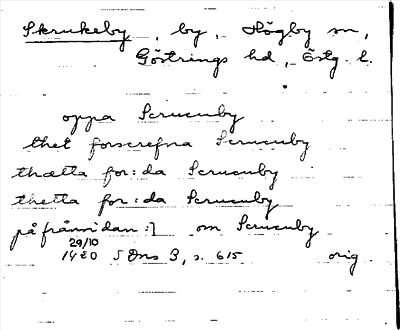 Skrukeby, by, Högby sn,
Göstrings hd, Östg. l.
oppa Scrucuby
thet forscrefna Scrucuby
thætta for:da Scrucuby
thetta for:da Scrucuby
på frånsidan:] om Scrucuby
29/10
1420 SDns 3, s. 615 orig.